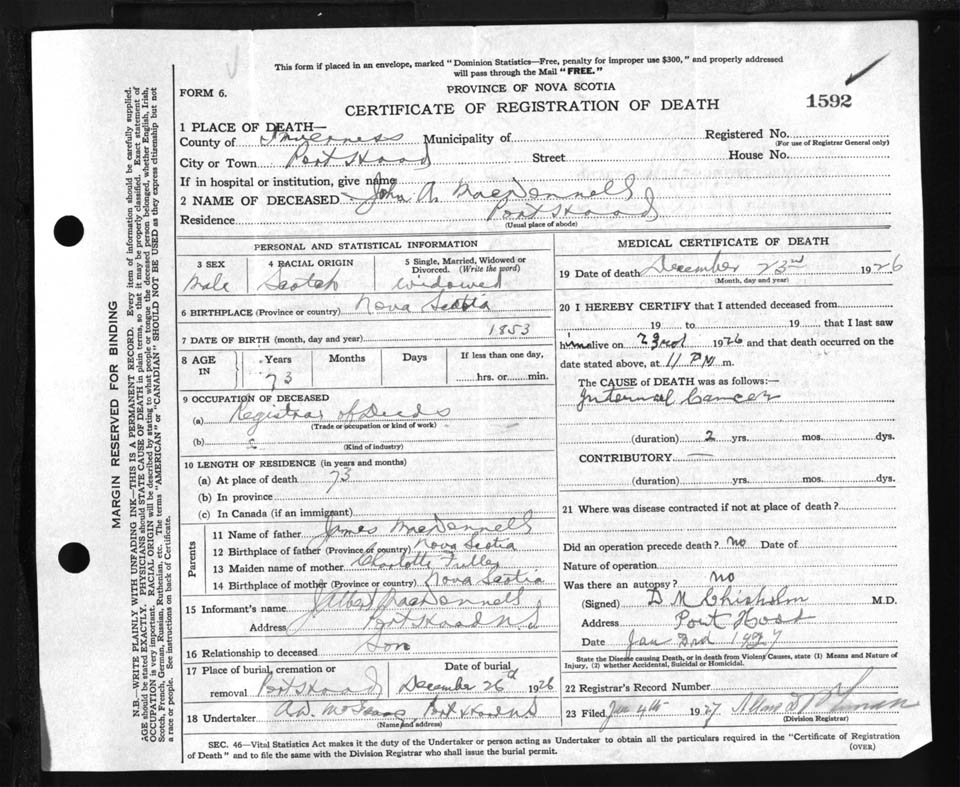 This form if placed in an envelope, marked "Dominion Statistics—Free, penalty for improper use $300," and properly addressed
will pass through the Mail "FREE."
FORM 6.
PROVINCE OF NOVA SCOTIA
CERTIFICATE OF REGISTRATION OF DEATH
1592
1 PLACE OF DEATH—
County of Inverness Municipality of Registered No.
(For use of Registrar General only)
City or Town Port Hood Street House No.
If in hospital or institution, give name
2 NAME OF DECEASED John A. MacDonnell
Residence Port Hood
(Usual place of abode)
PERSONAL AND STATISTICAL INFORMATION
3 SEX 4 RACIAL ORIGIN 5 Single, Married, Widowed or
Divorced. (Write the word)
Male Scotch Widowed
6 BIRTHPLACE (Province or country) Nova Scotia
7 DATE OF BIRTH (month, day and year) 1853
8 AGE IN Years Months Days If less than one day,
73 hrs. or min.
9 OCCUPATION OF DECEASED
(a) Registrar of Deeds
(Trade or occupation or kind of work)
(b)
(Kind of industry)
10 LENGTH OF RESIDENCE (in years and months)
(a) At place of death 73
(b) In province
(c) In Canada (if an immigrant)
Parents
11 Name of father James MacDonnell
12 Birthplace of father (Province or country) Nova Scotia
13 Maiden name of mother Charlotte
14 Birthplace of mother (Province or country) Nova Scotia
15 Informant's name Albert MacDonnell
Address Port Hood N S
16 Relationship to deceased Son
17 Place of burial, cremation or Date of burial
removal Port Hood December 26th 1926
18 Undertaker Port Hood N S
(Name and address)
MEDICAL CERTIFICATE OF DEATH
19 Date of death December 23rd 1926
(Month, day and year)
20 I HEREBY CERTIFY that I attended deceased from
19 to 19 that I last saw
him alive on 23rd 1926 and that death occurred on the
date stated above, at 11 PM m.
The CAUSE OF DEATH was as follows:—
Internal Cancer
(duration) 2 yrs. mos. dys.
CONTRIBUTORY —
(duration) yrs. mos. dys.
21 Where was disease contracted if not at place of death?
Did an operation precede death? no Date of
Nature of operation
Was there an autopsy? no
(Signed) D M Chisholm M.D.
Address Port Hood
Date Jan 3rd 1927
State the Disease causing Death, or in death from Violent Causes, state (1) Means and Nature of
Injury, (2) whether Accidental, Suicidal or Homicidal.
22 Registrar's Record Number
23 Filed Jan 4th 1927
(Division Registrar)
SEC. 46—Vital Statistics Act makes it the duty of the Undertaker or person acting as Undertaker to obtain all the particulars required in the "Certificate of Registration
of Death" and to file the same with the Division Registrar who shall issue the burial permit.
(OVER)
MARGIN RESERVED FOR BINDING
N.B.—WRITE PLAINLY WITH UNFADING INK—THIS IS A PERMANENT RECORD. Every item of information should be carefully supplied.
AGE should be stated EXACTLY. PHYSICIANS should STATE CAUSE OF DEATH in plain terms, so that it may be properly classified. Exact statement of
OCCUPATION is very important. RACIAL ORIGIN will be described by stating to what people or tongue the deceased person belonged, whether English, Irish,
Scotch, French, German, Russian, Ruthenian, etc. The terms "AMERICAN" or "CANADIAN" SHOULD NOT BE USED as they express citizenship but not
a race or people. See instructions on back of Certificate.